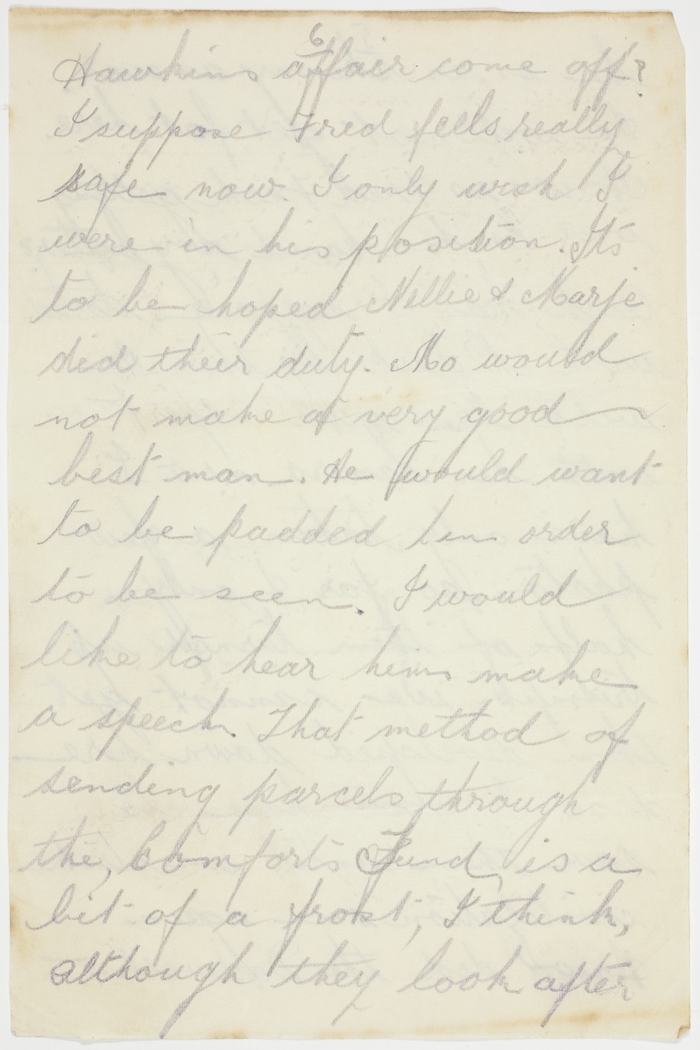 6
Hawkins affair come off?
I suppose Fred feels really
safe now. I only wish I
were in his position. Its
to be hoped Nellie & Marje
did their duty. Mo would
not make a very good
best man. He would want
to be padded in order
to be seen. I would
like to hear him make
a speech. That method of
sending parcels through
the, Comforts Fund, is a
bit of a frost, I think,
although they look after